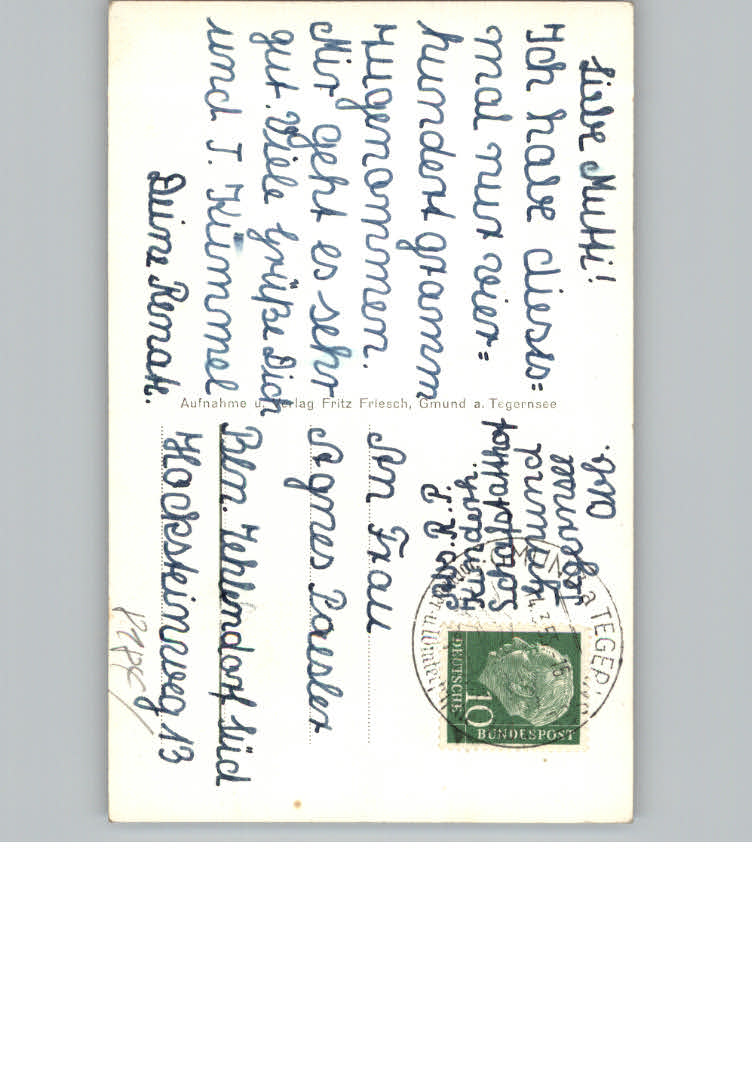 Liebe Mutti!
Ich habe dieses=
mal nur vier=
hundert gramm
zugenommen.
Mir geht es sehr
gut. Viele Grüße Dich
und T. Kümmel
Deine Renate.
Aufnahme u. Verlag Fritz Friesch, Gmund a. Tegernsee
An Frau
Agnes Paesler
Bln. Zehlendorf Süd
Hocksteinweg 13
Abs. R. P.
Kinderh.
a. TEGER
10
DEUTSCHE
BUNDESPOST